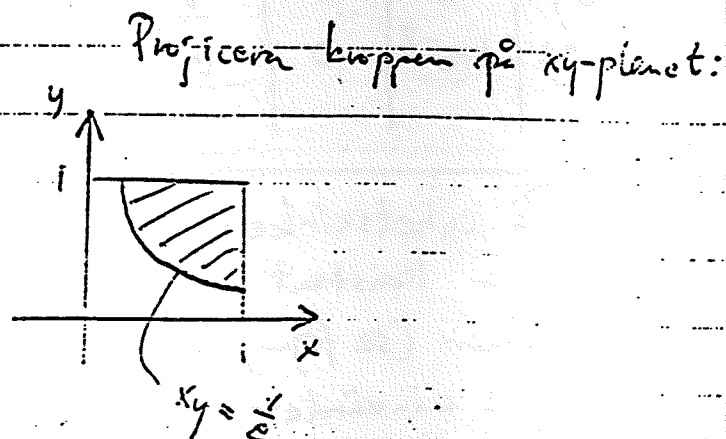 Projicera kroppen på xy-planet:
y
1
1
x
xy = 1/e